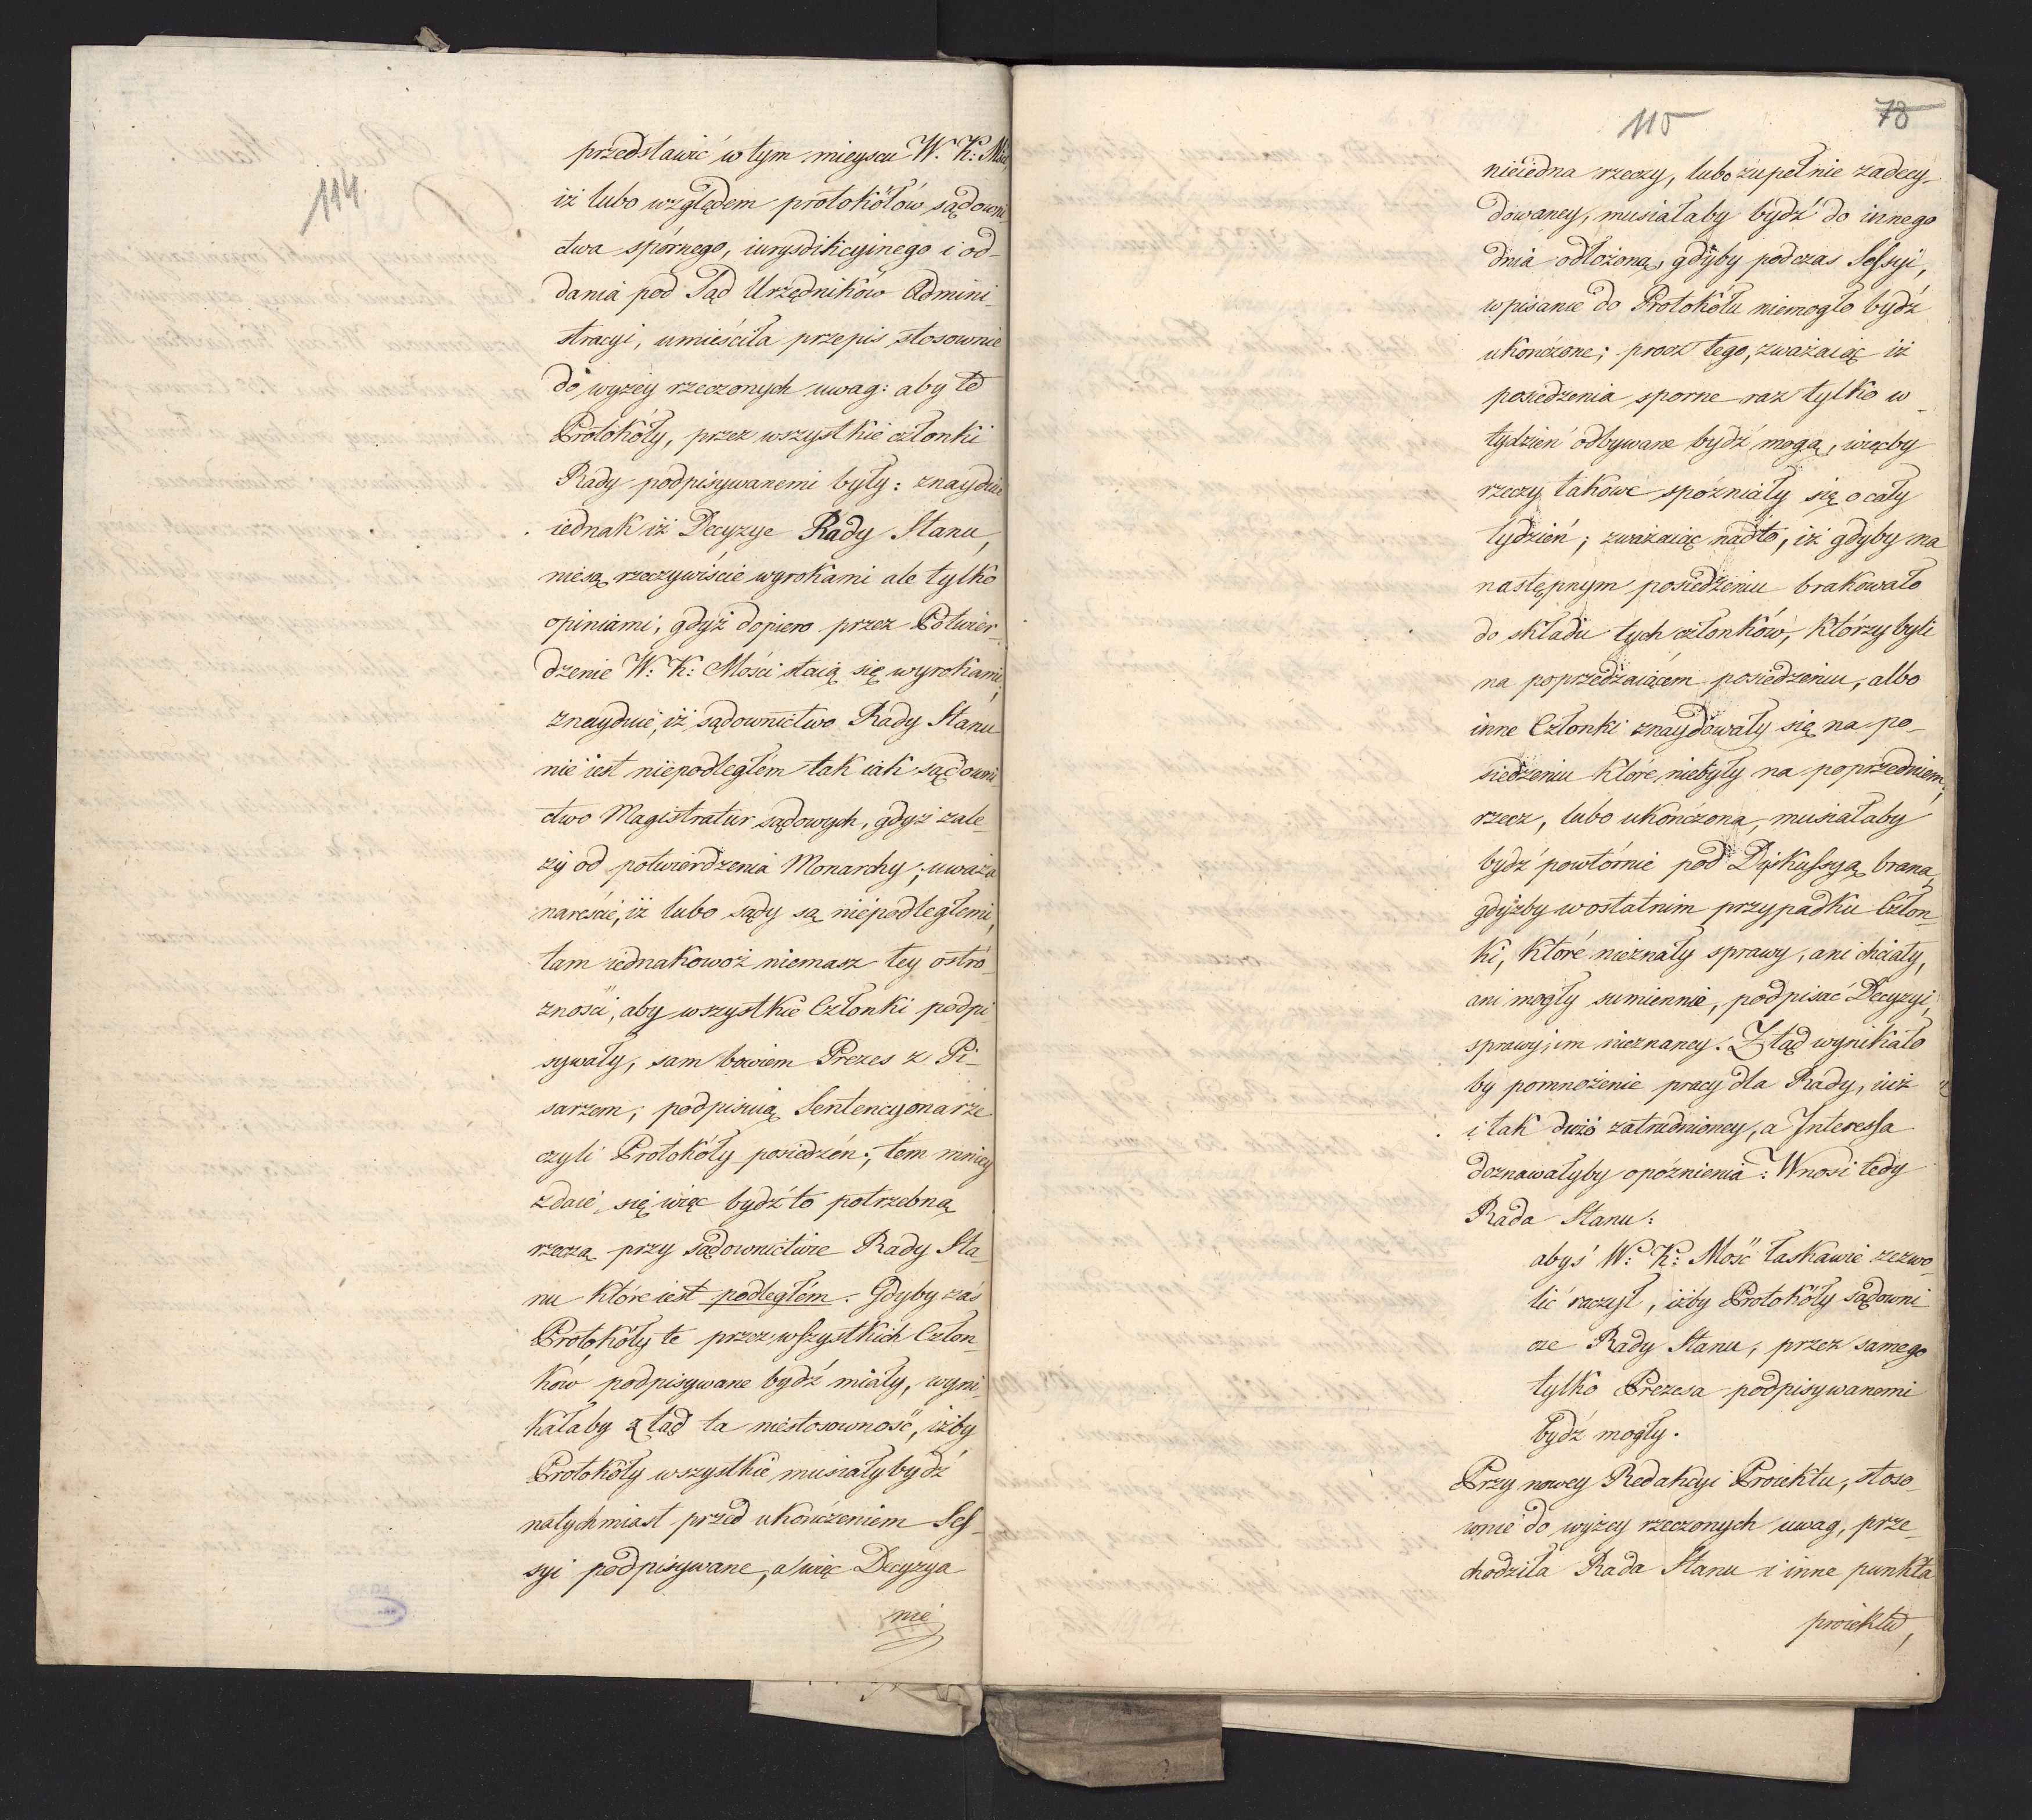 114.
przedstawić w tym mieyscu W. K: Mści,
iż lubo względem protokółów sądowni-
ctwa spórnego, iurysdikcyinego i od-
dania pod Sąd Urzędników Admini-
stracyi, umieściła przepis stosownie
do wyżey rzeczonych uwag: aby te
Protokóły, przez wszystkie członki
Rady podpisywanemi były: znayduie
iednak iż Decyzye Rady Stanu,
niesą rzeczywiście wyrokami ale tylko
opiniami, gdyż dopiero przez Potwier-
dzenie W: K: Mości staią się wyrokami;
znayduie, iż sądownictwo Rady Stanu
nie iest niepodległém tak iak sądowni-
ctwo Magistratur sądowych, gdyż zale-
ży od potwierdzenia Monarchy; uważa
nareście, iż lubo sądy są niepodległemi,
tam iednakowoż niemasz tey ostro-
żności, aby wszystkie Członki podpi-
sywały, sam bowiem Prezes z Pi-
sarzem, podpisuią Sentencyonarze
czyli Protokóły posiedzén; tém mniey
zdaie się więc bydź to potrzebną
rzeczą przy sądownictwie Rady Sta-
nu które iest podległém. Gdyby zaś
Protokóły te przez wszystkich Człon-
ków podpisywane bydź miały, wyni-
kałaby ztąd ta niestosowność, iżby
Protokóły wszystkie musiały bydź
natychmiast przed ukończeniem Ses-
syi podpisywane, a więc Decyzya
nie
115
78
nieiedna rzeczy, lubo zupełnie zadecy-
dowaney, musiałaby bydź do innego
dnia odłożona, gdyby podczas Sessyi,
wpisanie do Protokółu niemogło bydź
ukończone; procz tego, zważaiąc iż
posiedzenia sporne raz tylko w
tydzień odbywane bydź mogą, więcby
rzeczy takowe spóźniały się o cały
tydzień; zważaiąc nadto, iż gdyby na
następnym posiedzeniu brakowało
do składu tych członków, którzy byli
na poprzedzaiącem posiedzeniu, albo
inne Członki znaydowały się na po-
siedzeniu które niebyły na poprzedniem,
rzecz, lubo ukończona, musiałaby
bydź powtórnie pod Dyskussyą brana,
gdyżby w ostatnim przypadku Człon-
ki, które nieznały sprawy, ani chciały,
ani mogły sumiennie, podpisać Decyzyi,
sprawy im nieznaney. Ztąd wynikało
by pomnożenie pracy dla Rady, iuż
i tak dużo zatrudnioney, a Interessa
doznawałyby opóźnienia: Wnosi tedy
Rada Stanu:
abyś W: K: Mość łaskawie zezwo-
lić raczył, iżby Protokóły sądowni
cze Rady Stanu, przez samego
tylko Prezesa podpisywanemi
bydź mogły.
Przy nowey Redakcyi Proiektu, stoso-
wnie do wyżey rzeczonych uwag, prze-
chodziła Rada Stanu i inne punkta
proiektu,